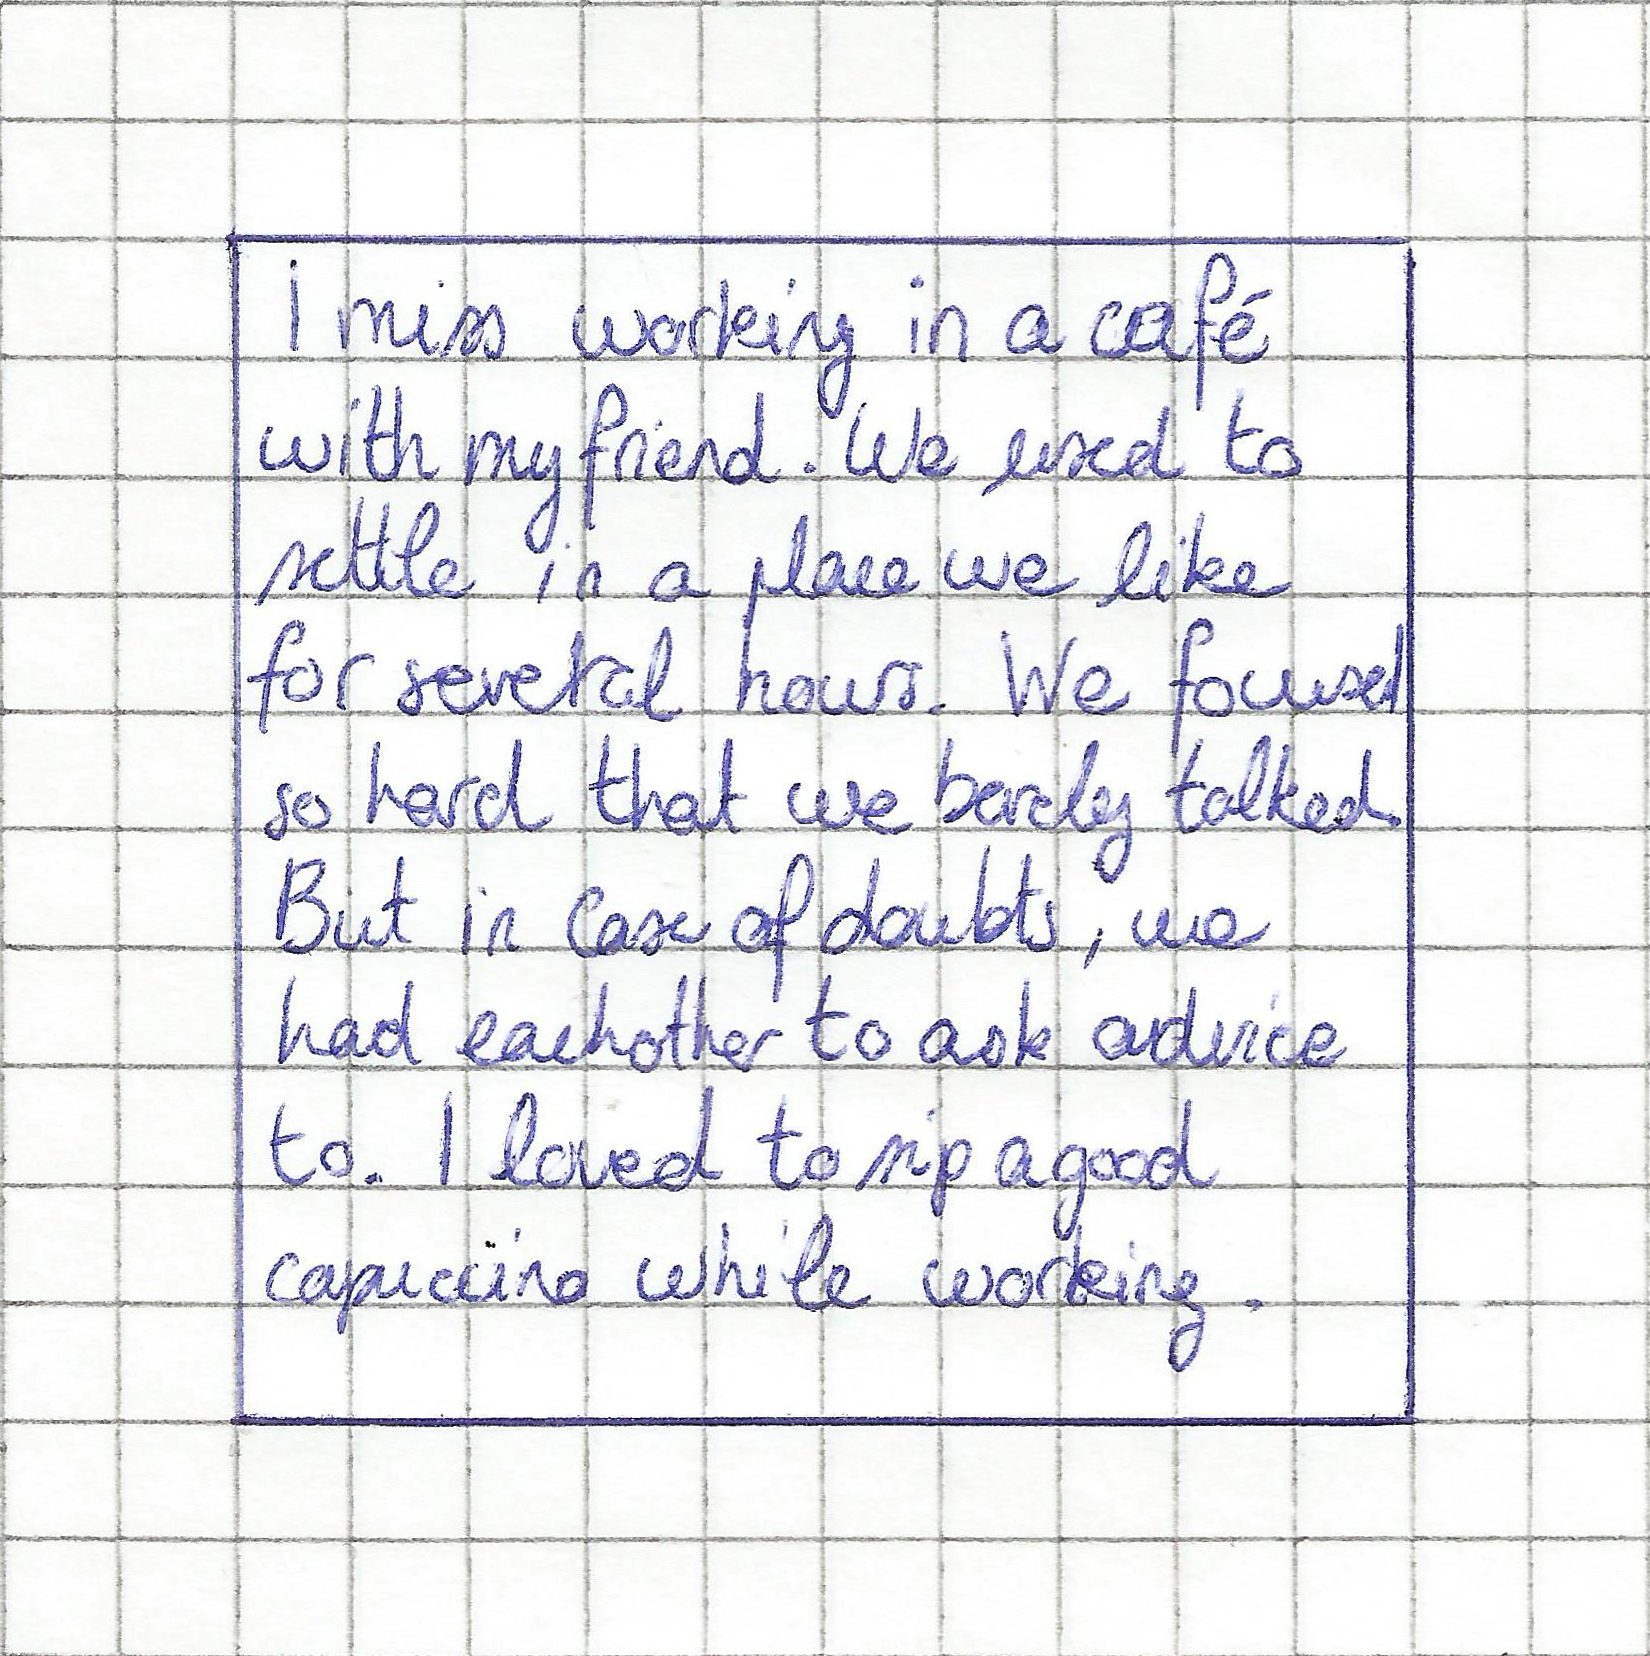 I miss working in a café
with my friend. We used to
settle in a place we like
for several hours. We focused
so hard that we barely talked.
But in case of doubts, we
had eachother to ask advice
to. I loved to sip a good
capuccino while working.